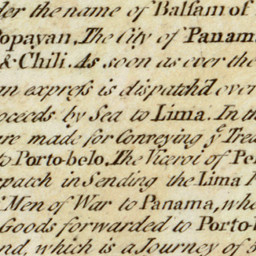 der the name of Balsam of
Popayan, The City of Panam
& Chili. As soon as ever the
an express is dispatch'd over
oceeds by Sea to Lima. In th
are made for Conveying yᵉ Trea
to Porto-belo. The Viceroy of Pe
spatch in Sending the Lima F
Men of War to Panama, whe
Goods forwarded to Porto-b
nd, which is a Journey of